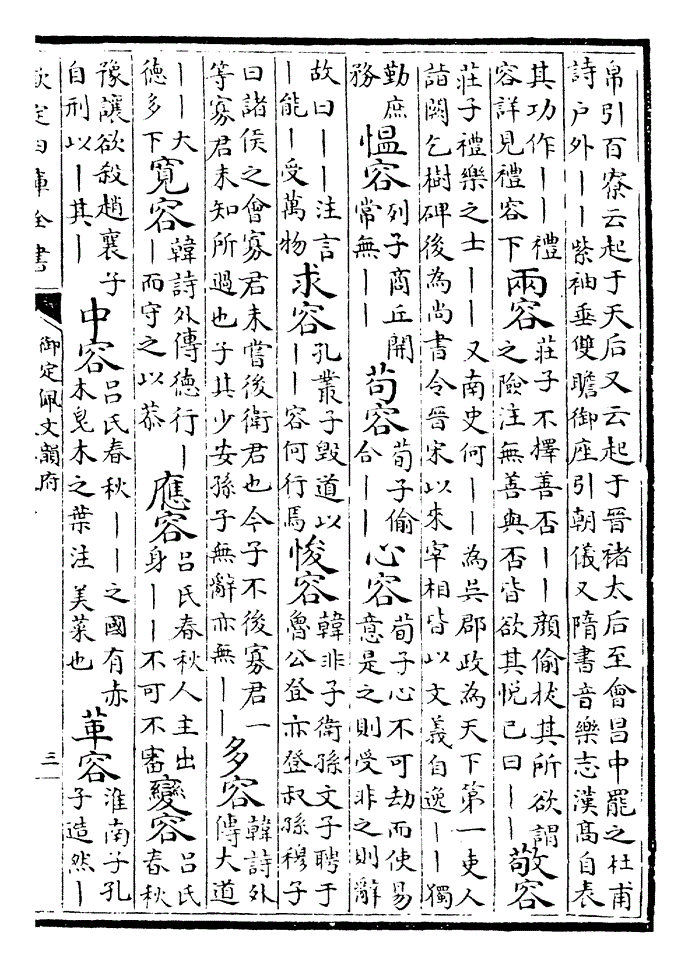 帛引百寮云起于天后又云起于晉褚太后至會昌中罷之杜甫
詩户外——紫袖垂雙瞻御座引朝儀又隋書音樂志漢髙自表
其功作——禮
容詳見禮容下
兩容
莊子不擇善否——顔偷拔其所欲謂
之險注無善與否皆欲其悦已曰——
敬容
莊子禮樂之士——又南史何——為吳郡政為天下第一吏人
詣闕乞樹碑後為尚書令晉宋以來宰相皆以文義自逸——獨
勤庶
務
愠容
列子商丘開
常無——
苟容
荀子偷
合——
心容
荀子心不可劫而使易
意是之則受非之則辭
故曰——注言
—能—受萬物
求容
孔叢子毁道以
——容何行焉
悛容
韓非子衛孫文子聘于
魯公登亦登叔孫穆子
曰諸侯之會寡君未嘗後衛君也今子不後寡君一
等寡君未知所過也子其少安孫子無辭亦無——
多容
韓詩外
傳大道
——大
德多下
寛容
韓詩外傳德行—
—而守之以恭
應容
吕氏春秋人主出
身——不可不審
變容
吕氏
春秋
豫讓欲殺趙襄子
自刑以—其—
中容
吕氏春秋——之國有赤
木𤣥木之葉注美菜也
革容
淮南子孔
子造然—
欽定四庫全書
御定佩文韻府
三